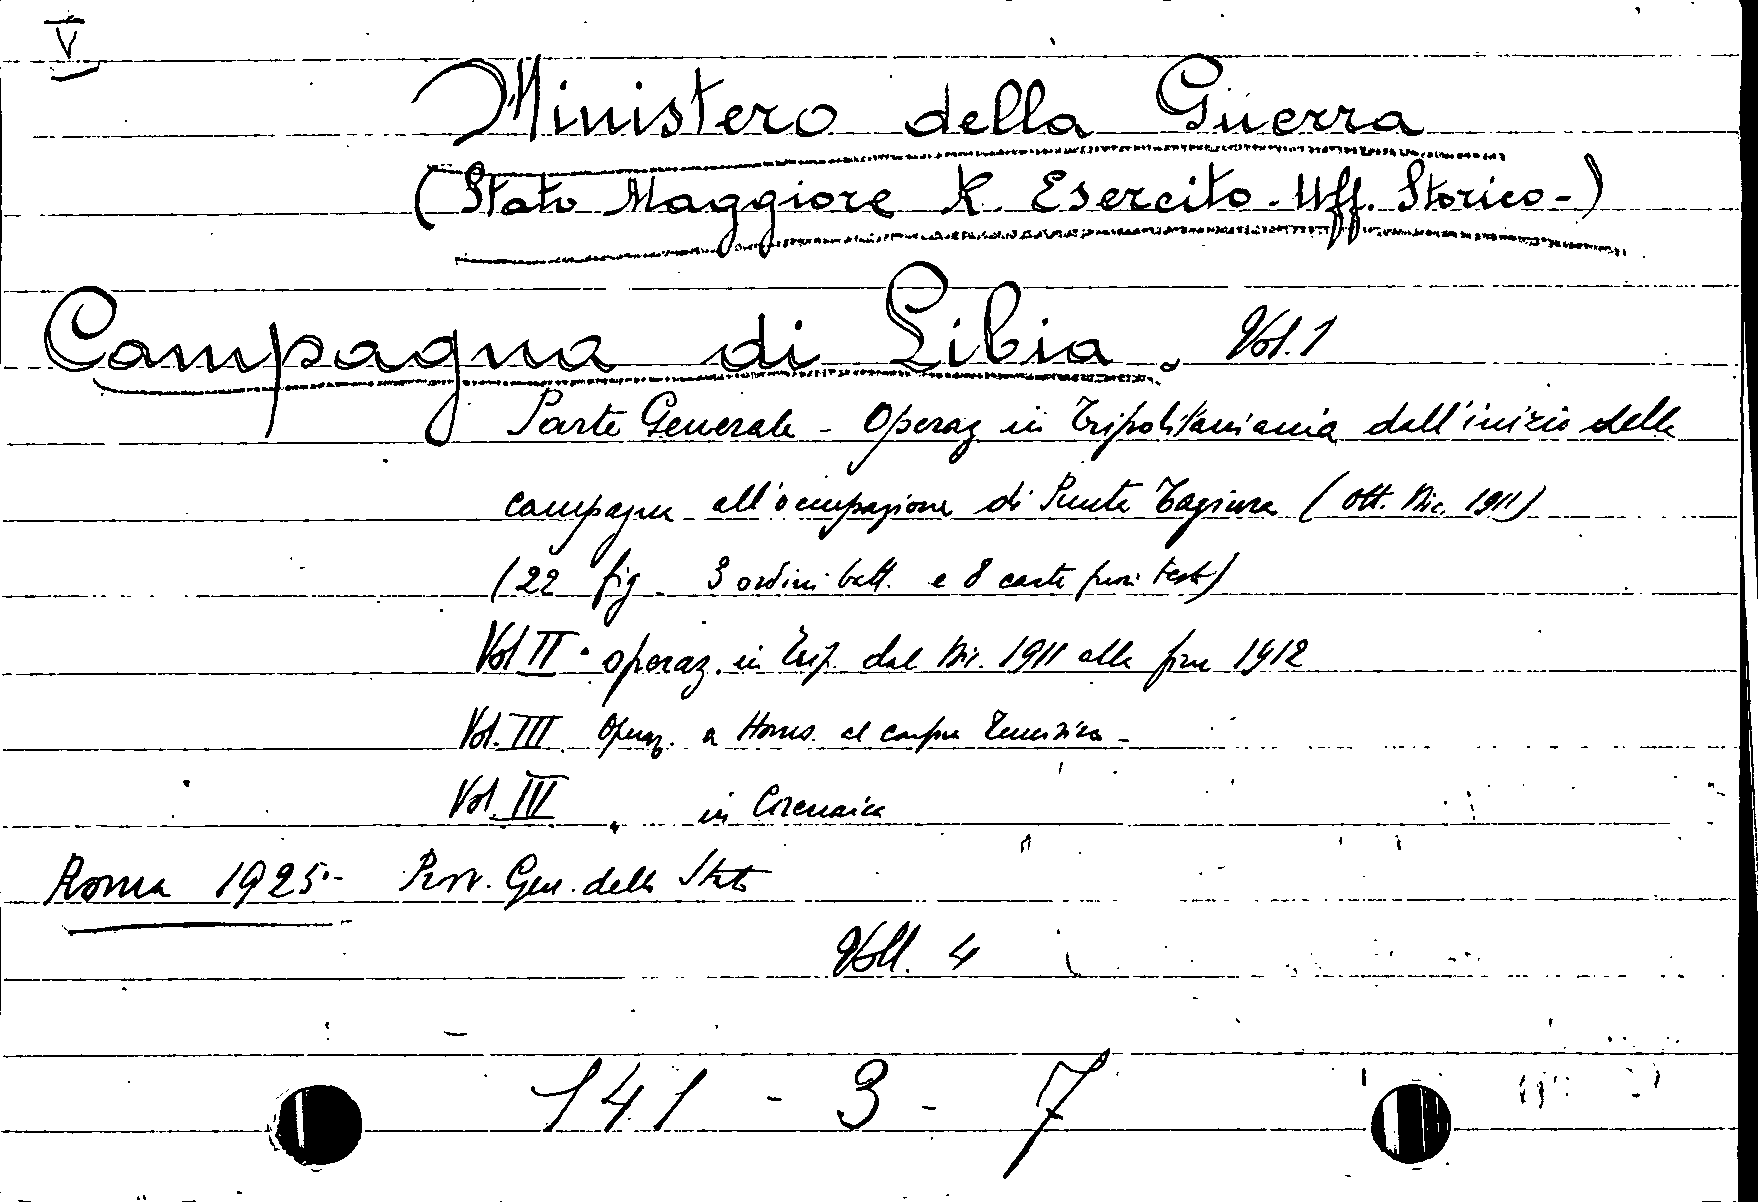 V
Ministero della Guerra
(Stato Maggiore R. Esercito - Uff. Storico -)
Campagna di Libia. Vol. 1
Parte Generale - Operaz in Tripolitaniania dall'inizio della
campagna all'occupazione di Punta Tagiura (Ott. Dic. 1911)
(22 fig. 3 ordini batt. e 8 carte fuori testo)
Vol II - operaz. in Trip. dal Dic. 1911 alla fine 1912
Vol. III Operaz. a Homs.
Vol. IIII " in Cirenaica
Roma 1925 - Provv. Gen. dello Stato
Voll. 4
141 - 3 - 7